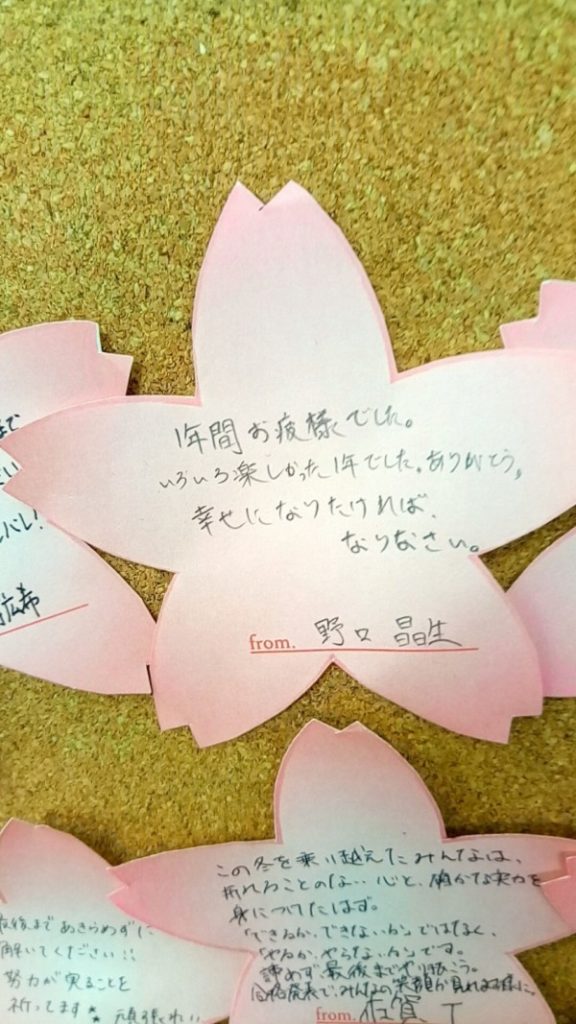 1年間お疲様でした。
いろいろ楽しかった1年でした。ありがとう。
幸せになりたければ、
なりなさい。
from. 野口 晶生
まで
バレ!
広希
この冬を乗り越えたみんなは、
折れることのない心と、確かな実力を
身につけたはず。
「できるか、できないか」ではなく、
「やるか、やらないか」です。
諦めず最後までやり抜こう。
合格発表でみんなの笑顔が見れる様に。
from. 佐賀 T
最後まであきらめずに
解いてください!!
努力が実ることを
祈ってます★